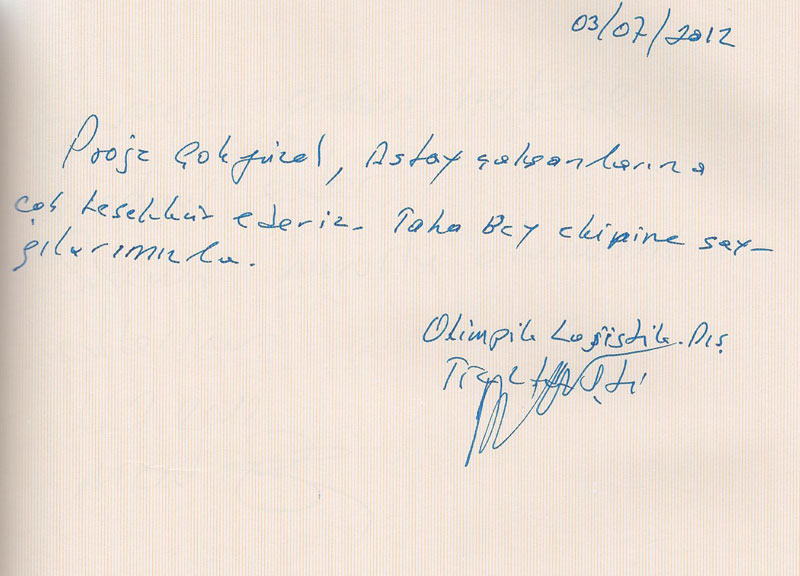 03/07/2012
Proje Çok güzel, Astay çalışanlarına
çok teşekkür ederiz. Taha Bey ekipine say-
gılarımızla.
Olimpik Lojistik. Dış
Tic Şti